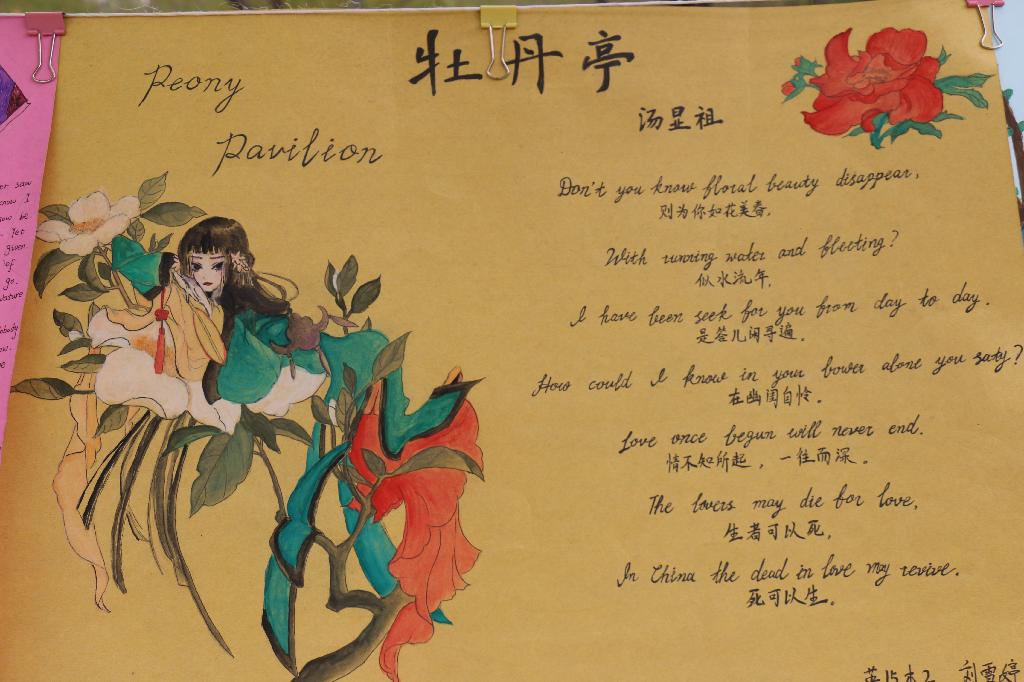 牡丹亭
Peony
Pavilion
汤显祖
Don't you know floral beauty disappear,
则为你如花美眷,
With running water and fleeting?
似水流年,
I have been seek for you from day to day.
是答儿闲寻遍。
How could I know in your bower alone you saty?
在幽闺自怜。
Love once begun will never end.
情不知所起,一往而深。
The lovers may die for love,
生者可以死,
In China the dead in love may revive.
死可以生。
英15本2 刘雪婷
or saw
know I
be
Yet
given
of
go.
Nature